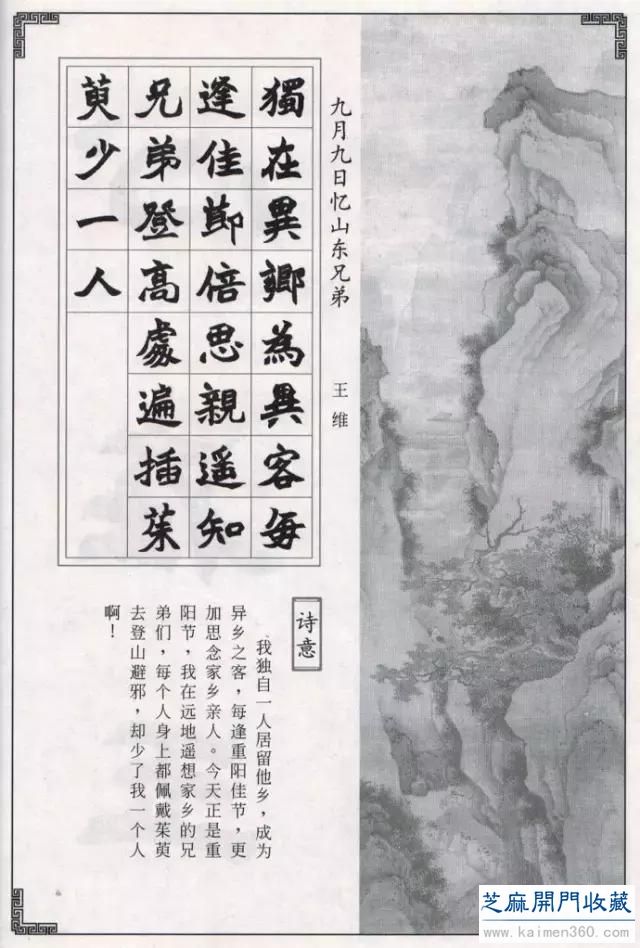 九月九日忆山东兄弟
王维
獨在異鄉為異客每
逢佳節倍思親遥知
兄弟登高處遍插茱
萸少一人
诗意
我独自一人居留他乡，成为
异乡之客，每逢重阳佳节，更
加思念家乡亲人。今天正是重
阳节，我在远地遥想家乡的兄
弟们，每个人身上都佩戴茱萸
去登山避邪，却少了我一个人
啊！
芝麻開門收藏
www.kaimen360.com